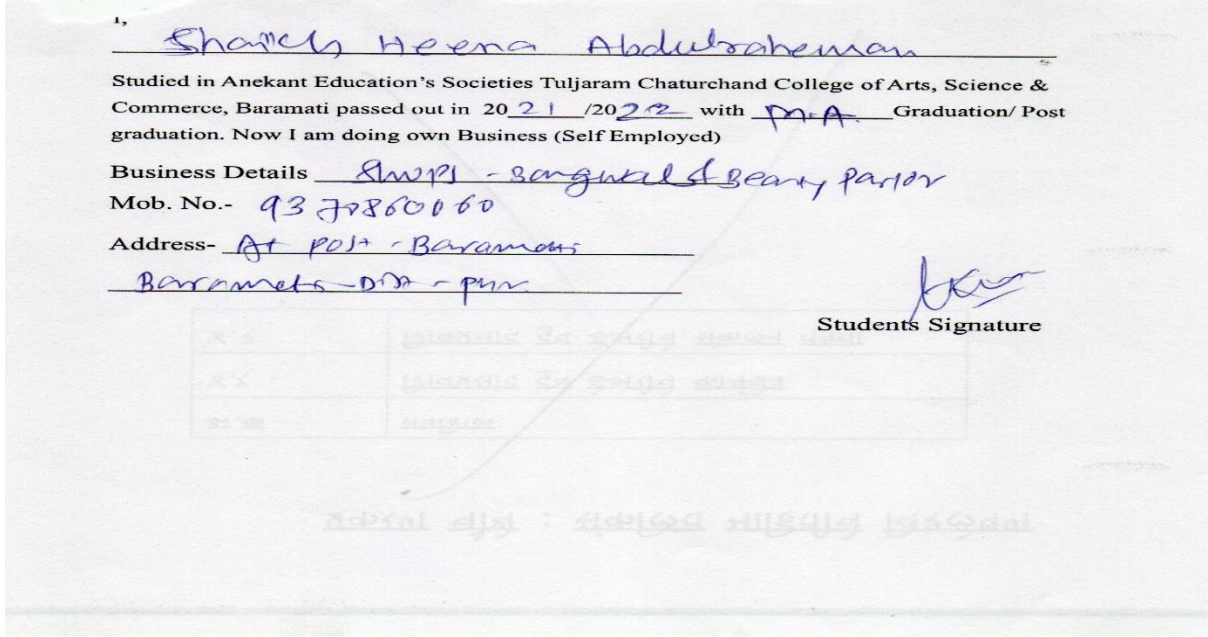 I,
Shaikh Heena Abdulraheman
Studied in Anekant Education's Societies Tuljaram Chaturchand College of Arts, Science &
Commerce, Baramati passed out in 2021/2022 with M.A. Graduation/ Post
graduation. Now I am doing own Business (Self Employed)
Business Details Shops - & Beauty Parlor
Mob. No.- 9370860060
Address- At post - Baramati
Baramati - Dist - Pune
Students Signature